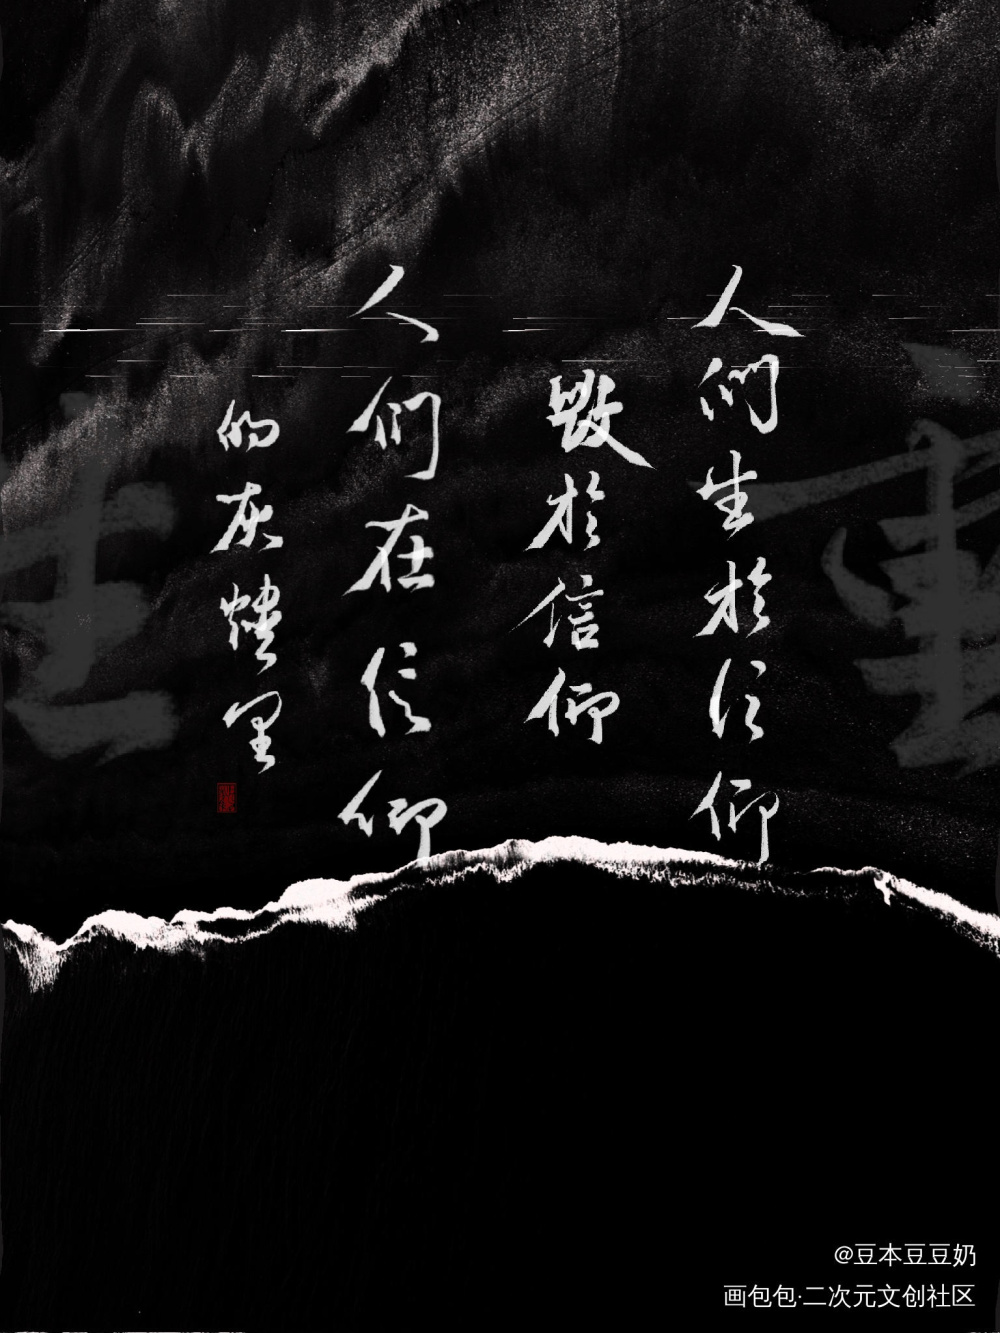 人們生於信仰
毁於信仰
人們在信仰
的灰燼里
@豆本豆豆奶
画包包·二次元文创社区